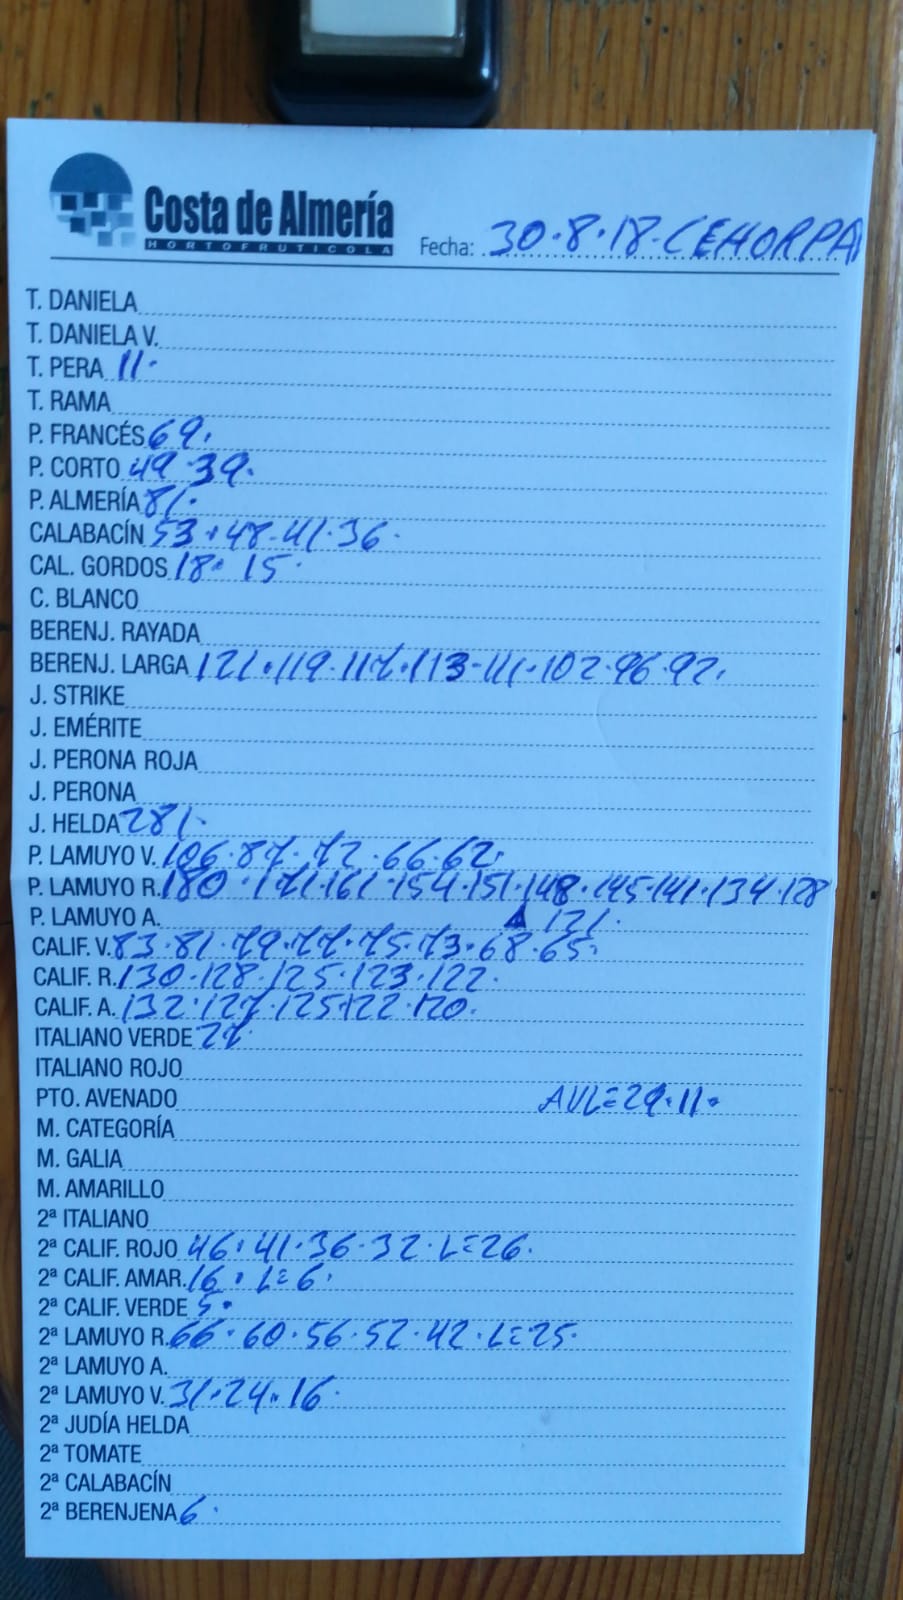 Costa de Almería
HORTOFRUTICOLA
Fecha: 30.8.18. CEHORPA
T. DANIELA
T. DANIELA V.
T. PERA 11.
T. RAMA
P. FRANCÉS 69.
P. CORTO 49.39.
P. ALMERÍA 81.
CALABACÍN 53.48.41.36.
CAL. GORDOS 18.15.
C. BLANCO
BERENJ. RAYADA
BERENJ. LARGA 121.119.117.113.111.102.96.92.
J. STRIKE
J. EMÉRITE
J. PERONA ROJA
J. PERONA
J. HELDA 281.
P. LAMUYO V. 106.87.72.66.62.
P. LAMUYO R. 180.171.161.154.151.148.145.141.134.128
P. LAMUYO A. 121.
CALIF. V. 83.81.79.77.75.73.68.65.
CALIF. R. 130.128.125.123.122.
CALIF. A. 132.127.125.122.120.
ITALIANO VERDE 77
ITALIANO ROJO
PTO. AVENADO AVL=29.11.
M. CATEGORÍA
M. GALIA
M. AMARILLO
2ª ITALIANO
2ª CALIF. ROJO 46.41.36.32.L=26.
2ª CALIF. AMAR. 16.L=6.
2ª CALIF. VERDE 5.
2ª LAMUYO R. 66.60.56.52.42.L=25.
2ª LAMUYO A.
2ª LAMUYO V. 31.24.16.
2ª JUDÍA HELDA
2ª TOMATE
2ª CALABACÍN
2ª BERENJENA 6.